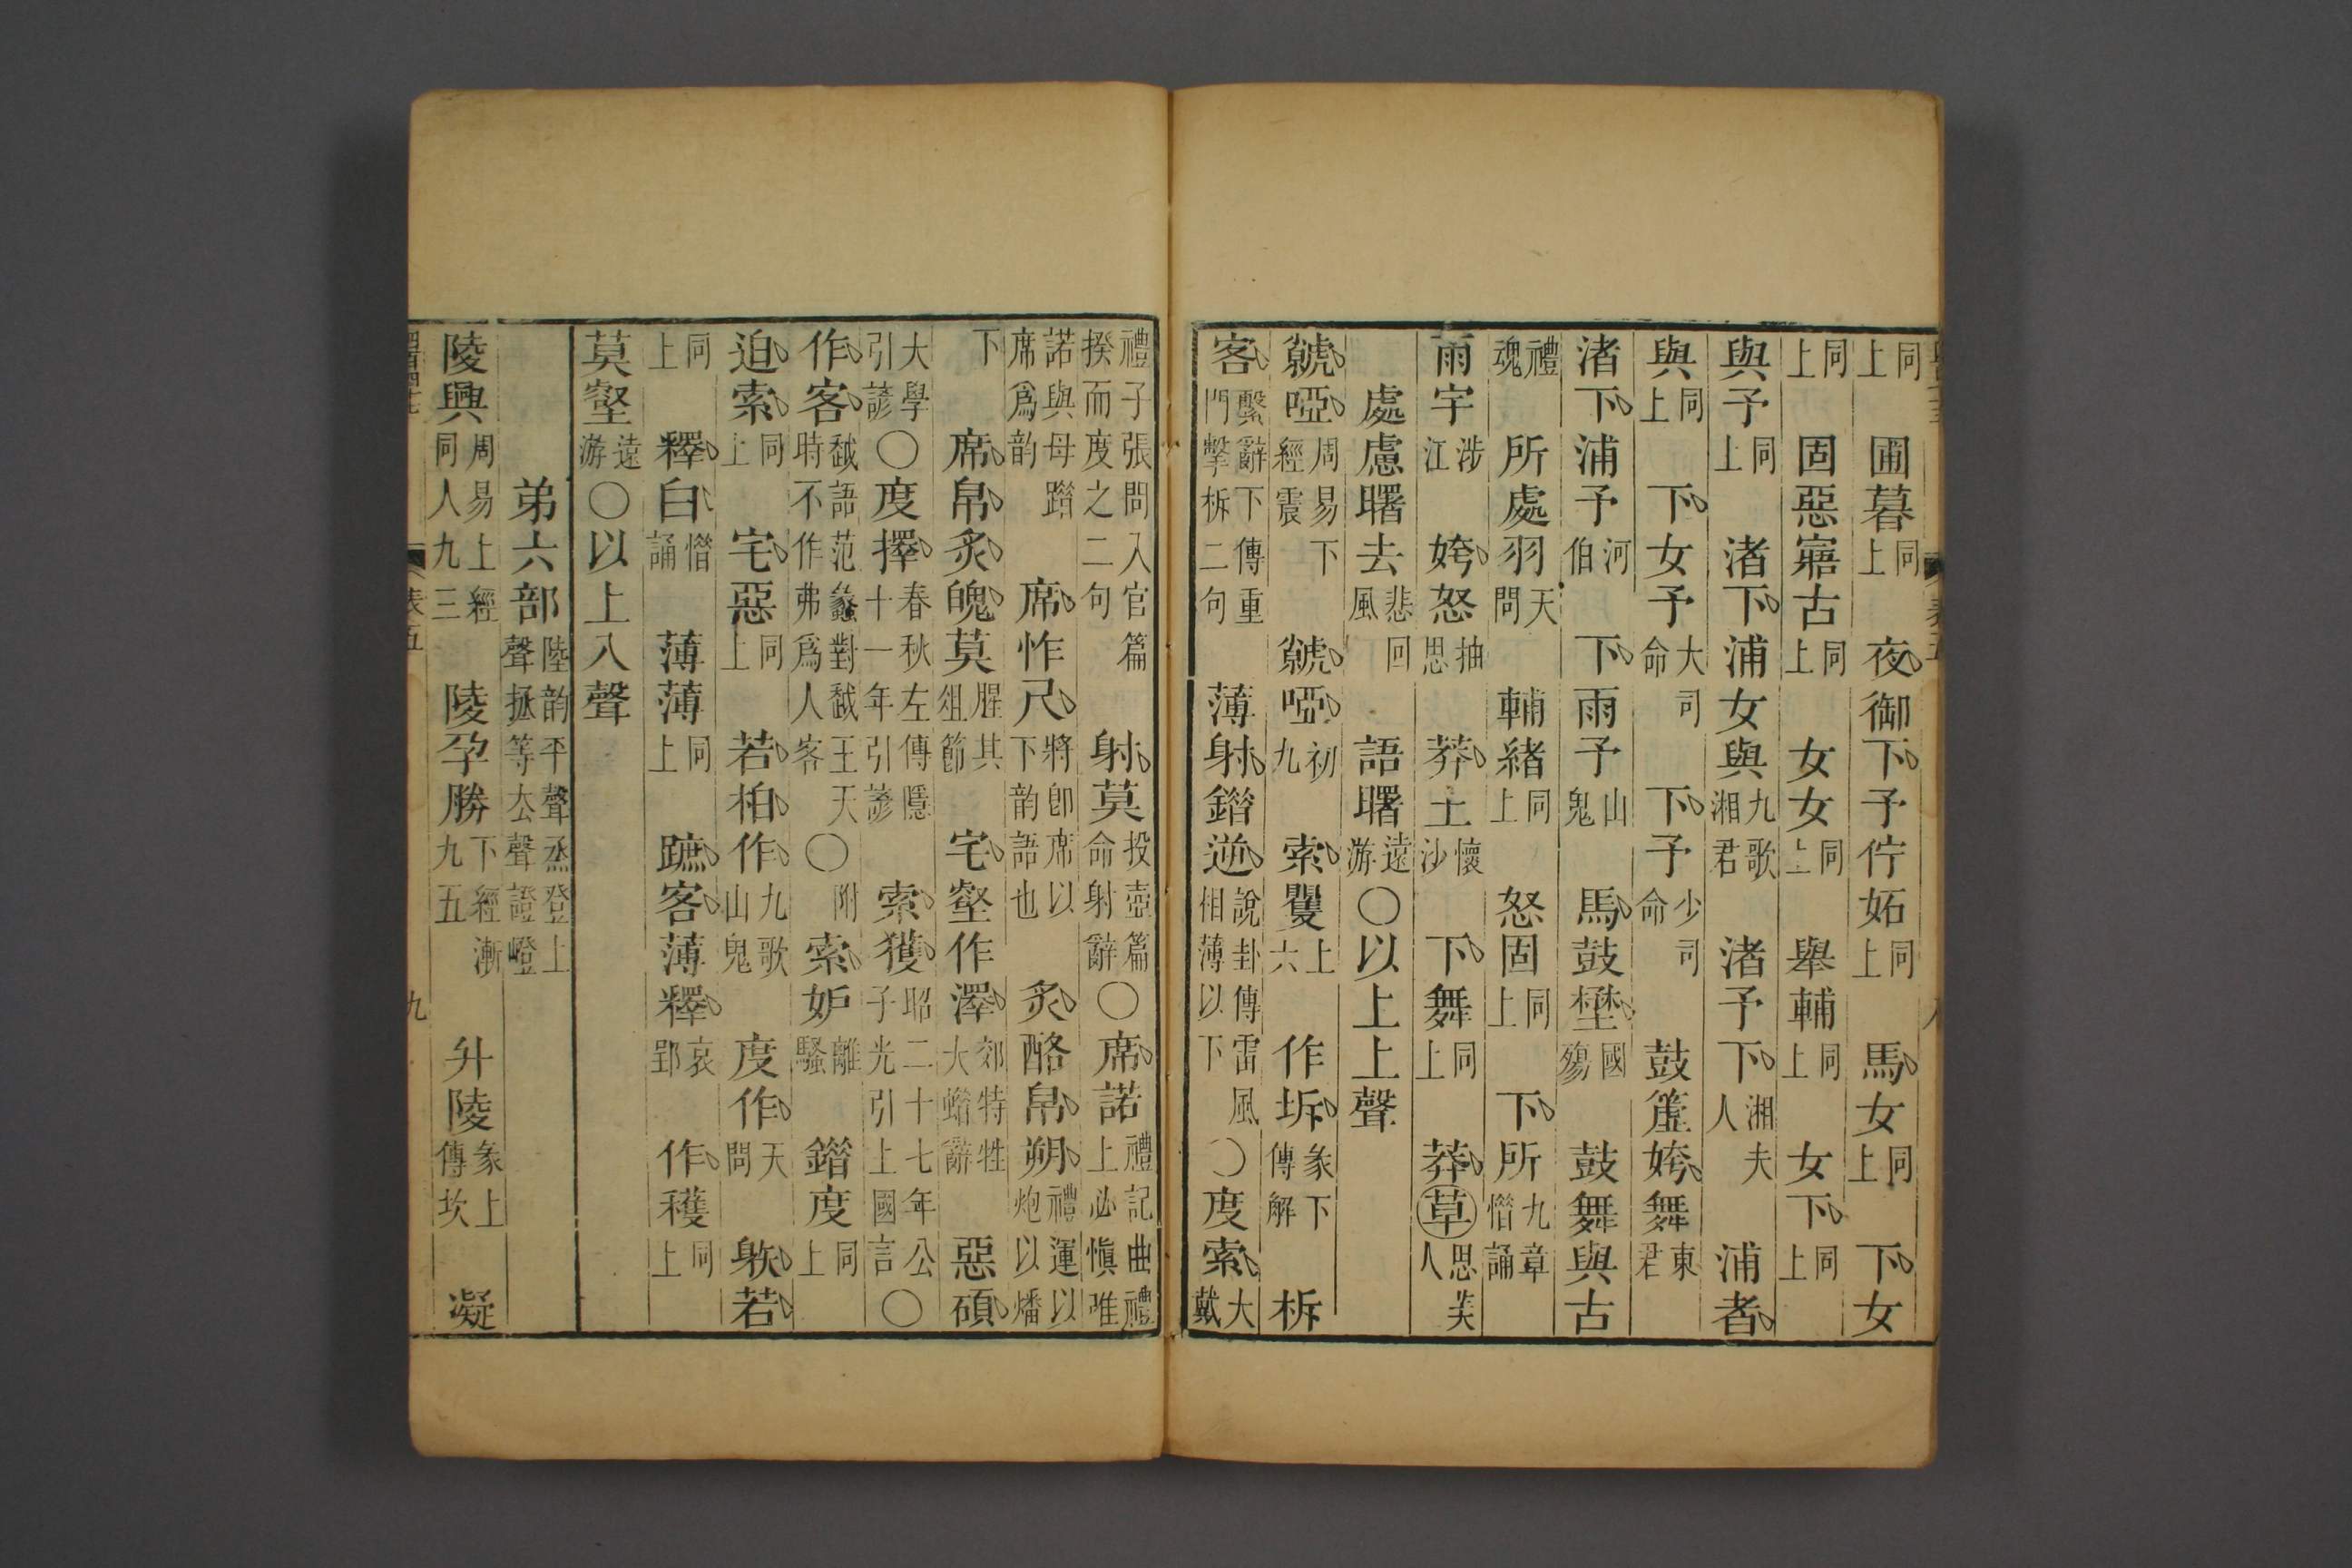 同上　圃暮同上　夜御下予佇妬同上　馬女同上　下女
同上　固惡寤古同上　女女同上　舉輔同上　女下同上
與予同上　渚下浦女與九歌湘君　渚予下湘夫人　浦者
與同上　下女予大司命　下予少司命　鼓簴姱舞東君
渚下浦予河伯　下雨予山鬼　馬鼓壄國殤　鼓舞與古
禮魂　所處羽天問　輔緒同上　怒固同上　下所九章惜誦
雨宇涉江　姱怒抽思　莽土懷沙　下舞同上　莽草思美人
處慮曙去悲回風　語曙遠游〇以上上聲
虩啞周易下經震　虩啞初九　索矍上六　作坼彖下傳解　柝
客繫辭下傳重門擊柝二句　薄射錯逆說卦傳雷風相薄以下〇度索大戴
禮子張問入官篇揆而度之二句　射莫投壺篇命射辭〇席諾禮記曲禮上必愼唯
諾與母踖席爲韵　席怍尺將卽席以下韵語也　炙酪帛朔禮運以炮以燔
下　席帛炙魄莫腥其俎節　宅壑作澤郊特牲大蜡辭　惡碩
大學引諺〇度擇春秋左傳隱十一年引諺　索獲昭二十七年公子光引上國言〇
作客越語范蠡對越王時不作弗爲人客　天〇附　索妒離騷　錯度同上
迫索同上　宅惡同上　若柏作九歌山鬼　度作天問　若
同上　釋白惜誦　薄薄同上　蹠客薄釋哀郢　作穫同上
莫壑遠游〇以上入聲
弟六部陸韵平聲烝登上聲拯等去聲證嶝
陵興周易上經同人九三　陵孕勝下經漸九五　升陵彖上傳坎　凝